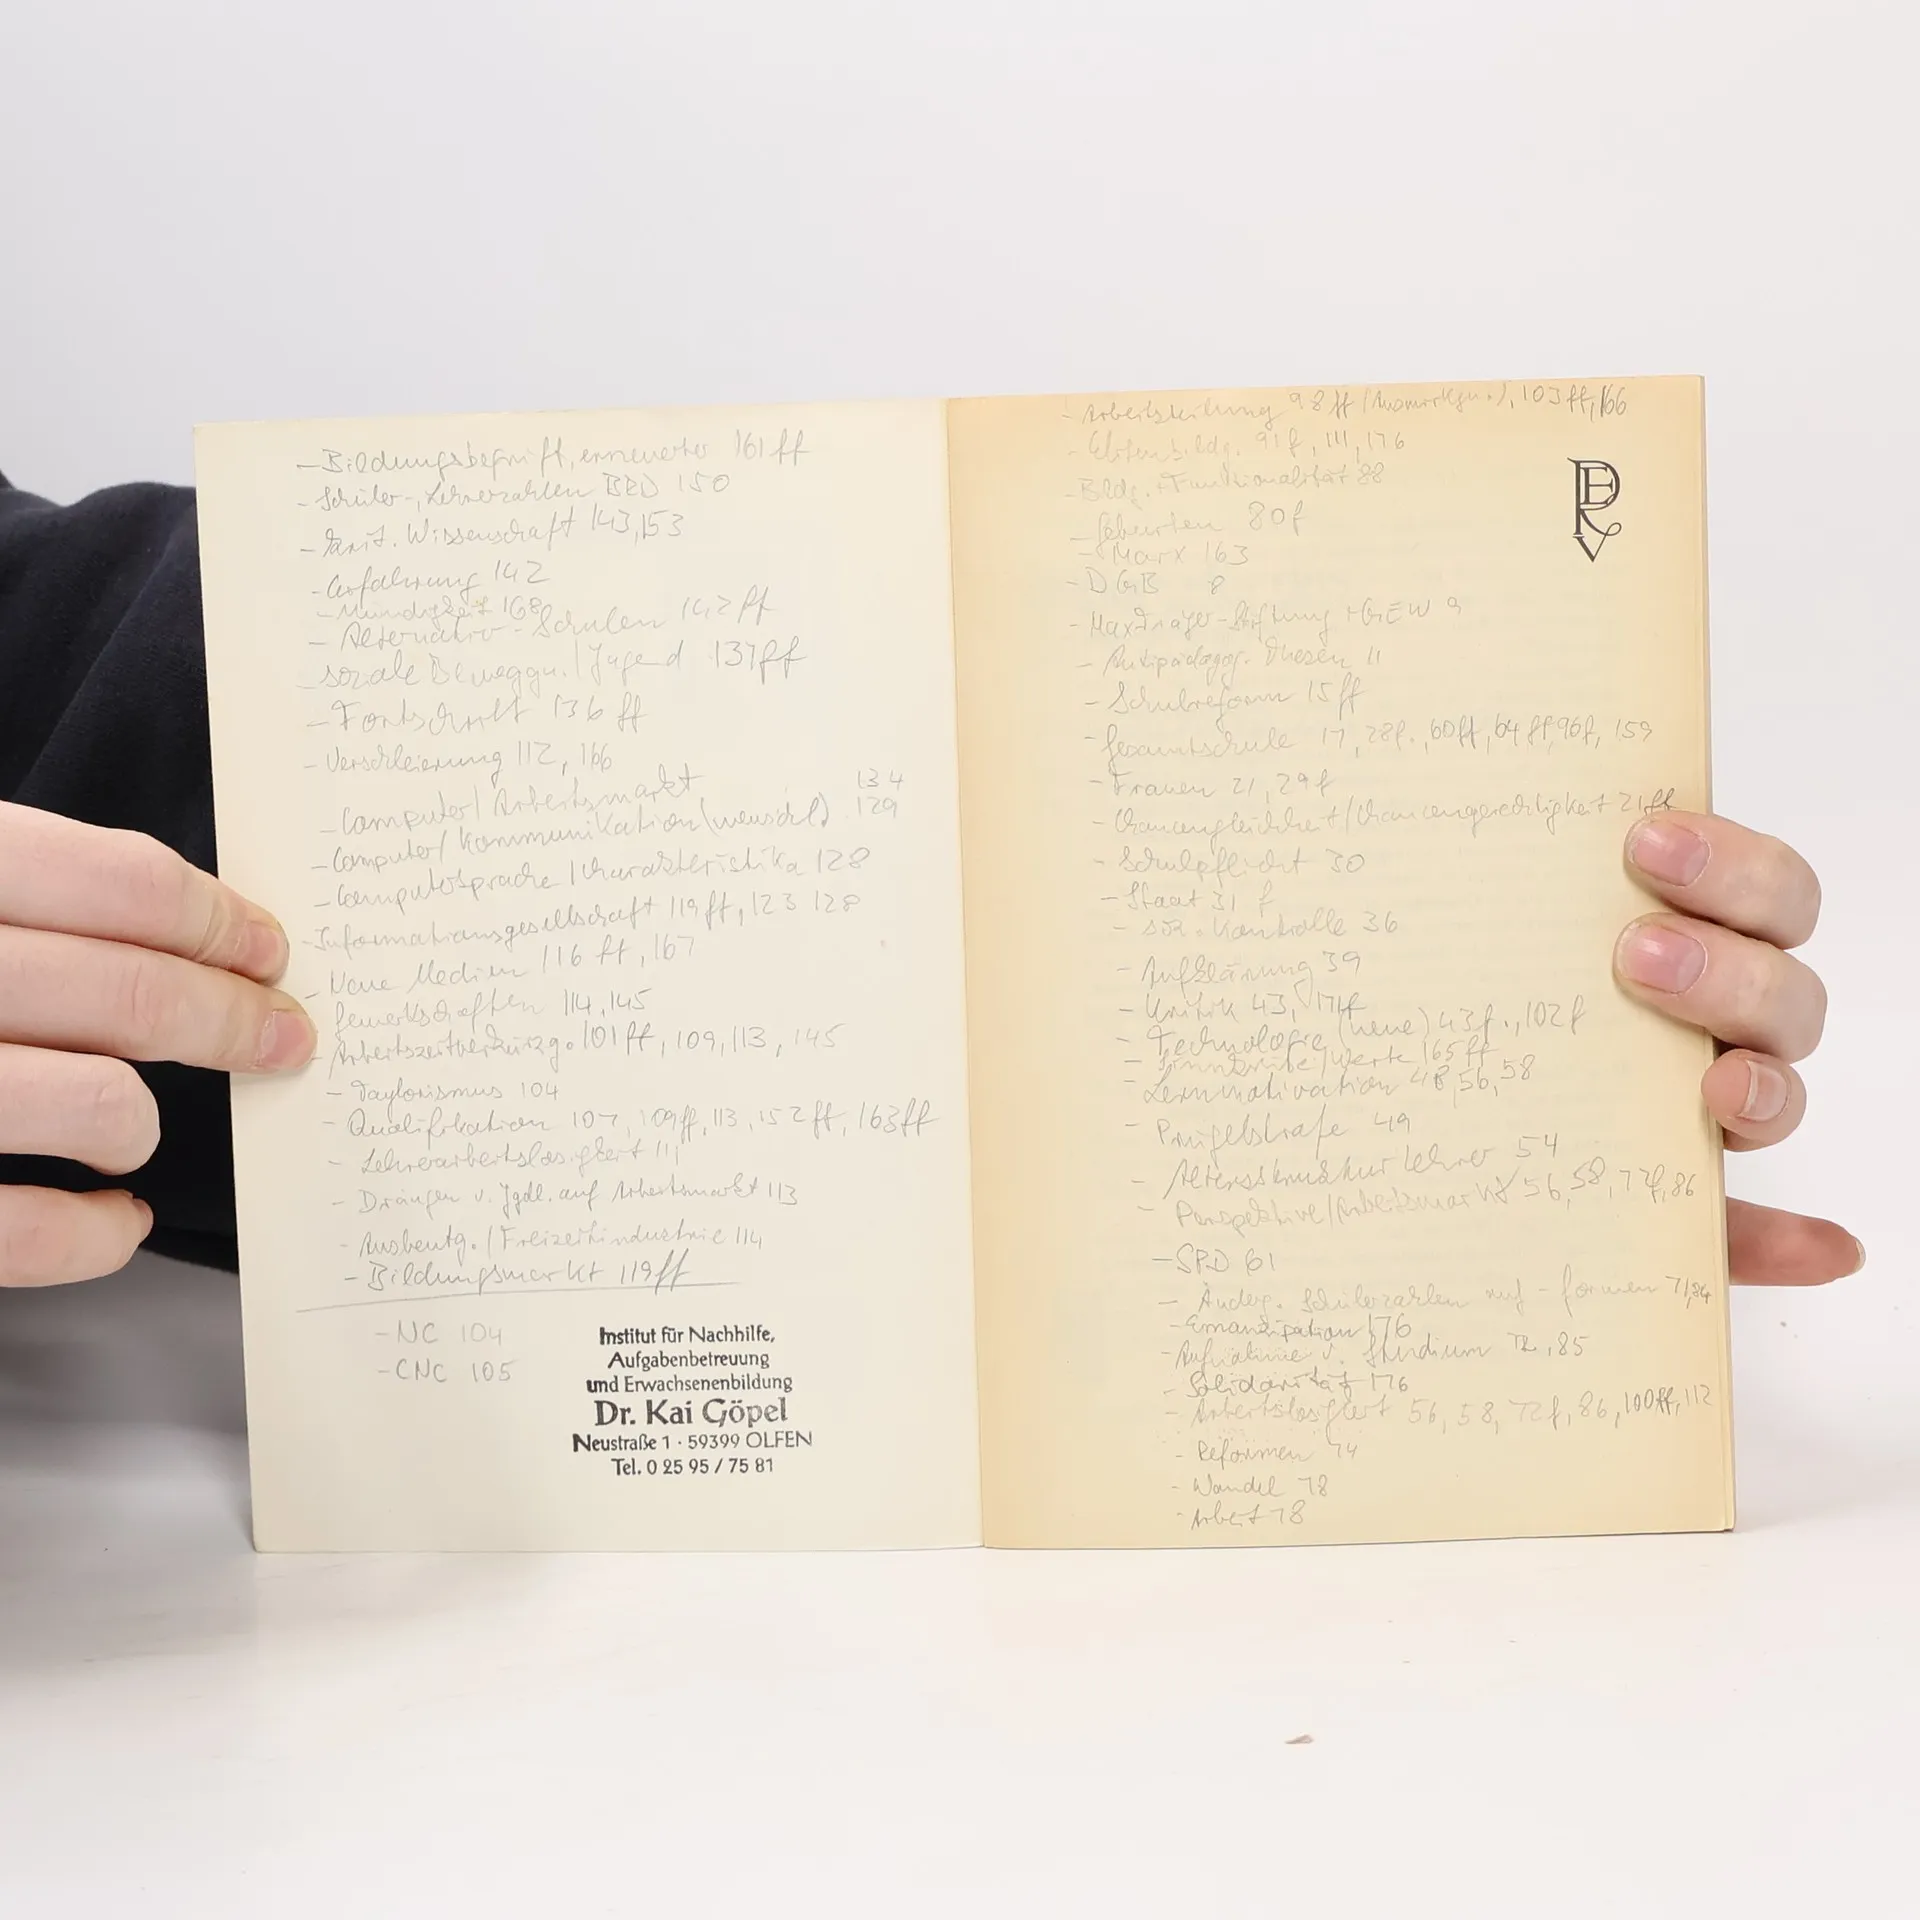 - Bildungsbegriff, erneuerter 161 ff
- Schüler-, Lehrerzahlen BRD 150
- krit. Wissenschaft 143, 153
- Erfahrung 142
- Mündigkeit 168
- Alternativ-Schulen 142 ff
- soziale Beweggn. / Jugend 137 ff
- Fortschritt 136 ff
- Verschleierung 112, 166
- Computer / Arbeitsmarkt 134
- Computer / Kommunikation (menschl.) 129
- Computersprache / Charakteristika 128
- Informationsgesellschaft 119 ff, 123 128
- Neue Medien 116 ff, 167
Gewerkschaften 114, 145
- Arbeitszeitverkürzg. 101 ff, 109, 113, 145
- Taylorismus 104
- Qualifikation 107, 109 ff, 113, 152 ff, 163 ff
- Lehrerarbeitslosigkeit 111
- Drängen v. Jgdl. auf Arbeitsmarkt 113
- Ausbeutg. / Freizeitindustrie 114
- Bildungsmarkt 119 ff
- NC 104
- CNC 105
Institut für Nachhilfe,
Aufgabenbetreuung
und Erwachsenenbildung
Dr. Kai Göpel
Neustraße 1 · 59399 OLFEN
Tel. 0 25 95 / 75 81
- Arbeitsteilung 98 ff 103 ff, 166
- Elitenbildg. 91 f, 111, 176
- Bldg. + Funktionalität 88
- Geburten 80 f
- Marx 163
- DGB 8
- Max-Träger-Stiftung + GEW 9
- Antipädagog. Thesen 11
- Schulreform 15 ff
- Gesamtschule 17, 28 f., 60 ff, 64 ff, 96 f, 159
- Frauen 21, 29 f
- Chancengleichheit / Chancengerechtigkeit 21 ff
- Schulpflicht 30
- Staat 31 f
- soz. Kontrolle 36
- Aufklärung 39
- Kritik 43, 171 f
- Technologie (neue) 43 f., 102 f
- Sinnkrise / Werte 165 ff
- Lernmotivation 48, 56, 58
- Prügelstrafe 49
- Altersstruktur Lehrer 54
- Perspektive / Arbeitsmarkt 56, 58, 72 f, 86
- SPD 61
- Änderg. Schülerzahlen auf - formen 71, 84
- Emanzipation 176
- Aufnahme v. Studium 72, 85
- Solidarität 176
- Arbeitslosigkeit 56, 58, 72 f, 86, 100 ff, 112
- Reformen 74
- Wandel 78
- Arbeit 78